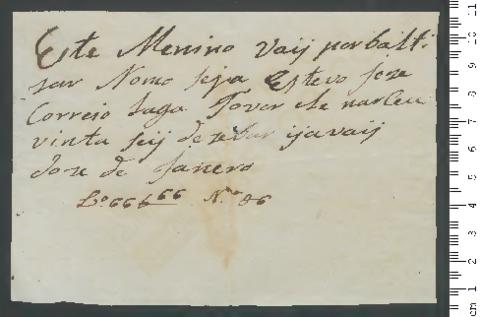 Este Menino Vaij por balti
zar Nomo seja Estevo Joze
Correio Saga Tover ele narceu
vinta seij de zebar ijavaij
Joze de Janero
Lº 66 66 Nº 86
cm 1 2 3 4 5 6 7 8 9 10 11